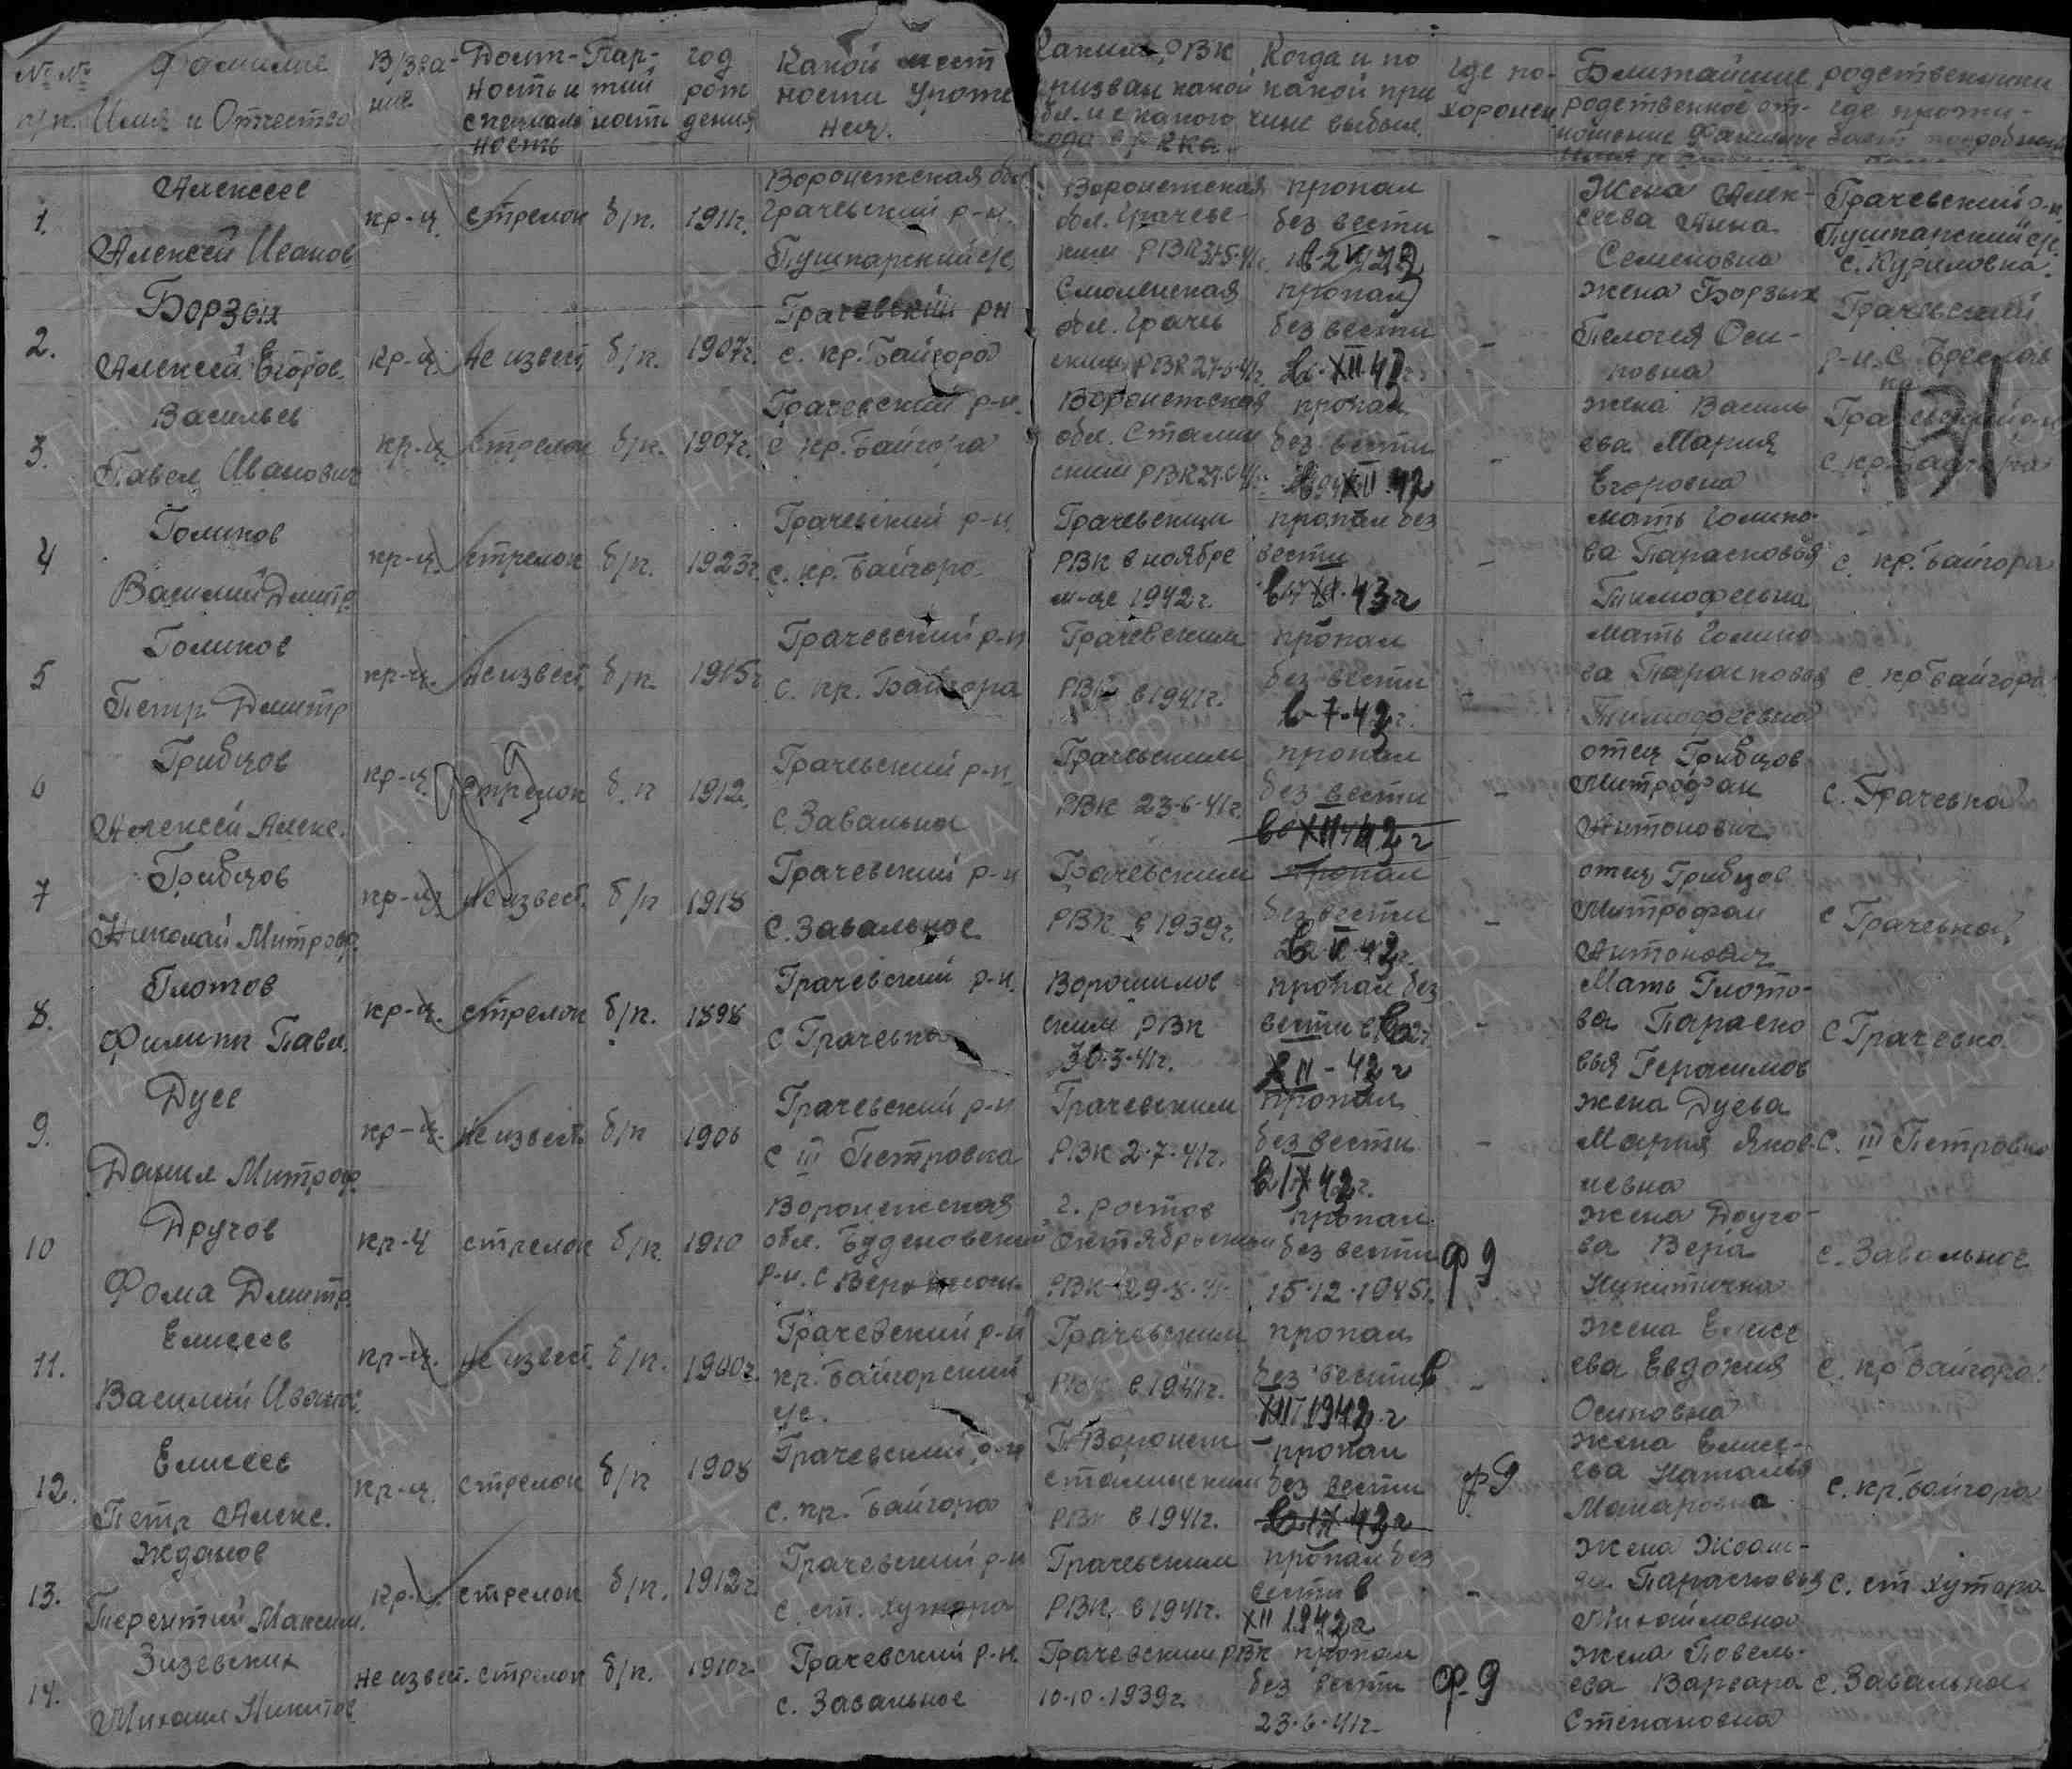 № № п/п.
фамилие
Имя и Отчество
В/зва-
ние
Долж-
ность и
специаль
ность
Пар-
тий
ность
год
рож
дения
Какой мест
ности уроже
нец.
Каким РВК
призван какой
обл. и с какого
года в РККА.
Когда и по
какой при
чине выбыл.
где по-
хоронен
Ближайшие родственники
родственное от-
ношение фамилие
где прожи-
вает подробный
1.
Алексеев
Алексей Иванов.
кр-ц.
стрелок
б/п.
1911г.
Воронежская обл.
Грачевский р-н.
Пушкарский с/с.
Воронежская
обл. Грачев-
ким РВК
пропал
без вести
-
Жена Алек-
сеева Анна
Семеновна
Грачевский р-н
Пушкарский с/с.
с. Куриловка.
2.
Борзых
Алексей Егоров.
кр-ц.
Не извест.
б/п.
1907г.
Грачевский рн
с. кр. Байгора
Смоленская
обл. Грачев
ским РВК 27-6-41г.
пропал
без вести
в XII 42
-
жена Борзых
Пелогея Оси-
повна
Грачевский
р-н. с.
3.
Васильев
Павел Иванович
кр-ц.
стрелок
б/п.
1907г.
Грачевский р-н.
с кр. Байгора
Воронежская
обл. Сталин
ским РВК
пропал
без вести
XII 42
-
жена Василь
ева Мария
Егоровна
с. кр. Байгора
4
Голиков
Василий Дмитр.
кр-ц.
стрелок
б/п.
1923г.
Грачевский р-н.
с. кр. Байгора.
Грачевским
РВК в ноябре
м-це 1942г.
пропал без
вести
43г
-
мать Голико-
ва Парасковья
Тимофеевна
с. кр. Байгора
5
Голиков
Петр Дмитр
кр-ц.
Не извест.
б/п.
1915г
Грачевский р-н
с. кр. Байгора
Грачевским
РВК в 1941г.
пропал
без вести
в-7-42г.
-
мать Голико
ва Парасковья
Тимофеевна
с. кр Байгора
6
Грибцов
Алексей Алекс.
кр-ц.
стрелок
б. п
1912.
Грачевский р-н
с. Завальное
Грачевским
РВК 23-6-41г.
пропал
без вести
в XII 42г
-
отец Грибцов
Митрофан
Антонович
с. Грачевка
7
Грибцов
Николай Митроф.
кр-ц
Не извест.
б/п
1918
Грачевский р-н
с. Завальное
Грачевским
РВК в 1939г.
пропал
без вести
42г.
-
отец Грибцов
Митрофан
Антонович
с Грачевка
8.
Глотов
Филипп Павл.
кр-ц.
стрелок
б/п.
1898
Грачевский р-н.
с Грачевка
Ворошилов
ским РВК
30-3-41г.
пропал без
вести в
XII-42г
-
Мать Глото-
ва Параско
вья Герасимов
с Грачевка
9.
Дуев
Данил Митроф.
кр-ц.
Не извест.
б/п
1906
Грачевский р-н
с III Петровка
Грачевским
РВК 2-7-41г.
пропал
без вести
в IX 42г.
-
жена Дуева
Мария Яков-
левна
с. III Петровка
10
Другов
Фома Дмитр.
кр-ц
стрелок
б/п.
1910
Воронежская
обл. Буденовский
р-н. с
г. Ростов
Октябрьским
РВК 29-8-41
пропал
без вести
15-12-1945г.
ф 9
жена Друго-
ва Вера
Никитична
с. Завальное
11.
Елисеев
Василий Иванов.
кр-ц.
Не извест.
б/п.
1900г.
Грачевский р-н
кр. Байгорский
с/с.
Грачевским
РВК в 1941г.
пропал
без вести в
XII 1942г
-
жена Елисе
ева Евдокия
Осиповна
с. кр Байгора
12.
Елисеев
Петр Алекс.
кр-ц.
стрелок
б/п
1908
Грачевский р-н
с. кр. Байгора
Г. Воронеж
сталинским
РВК в 1941г.
пропал
без вести
в IX 42г
ф 9
жена Елисе-
ева Наталья
Макаровна
с. кр. Байгора
13.
Жданов
Терентий Максим.
кр-ц
стрелок
б/п.
1912г
Грачевский р-н
с. ст. хутора
Грачевским
РВК, в 1941г.
пропал без
вести в
XII 1942г
-
жена Ждан-
Парасковья
Михайловна
с. ст хутора
14.
Зизевских
Михаил Никитов
не извест.
стрелок
б/п.
1910г.
Грачевский р-н.
с. Завальное
Грачевским РВК
10-10-1939г.
пропал
без вести
23-6-41г.
ф-9
жена Повель-
ева Варвара
Степановна
с. Завальное